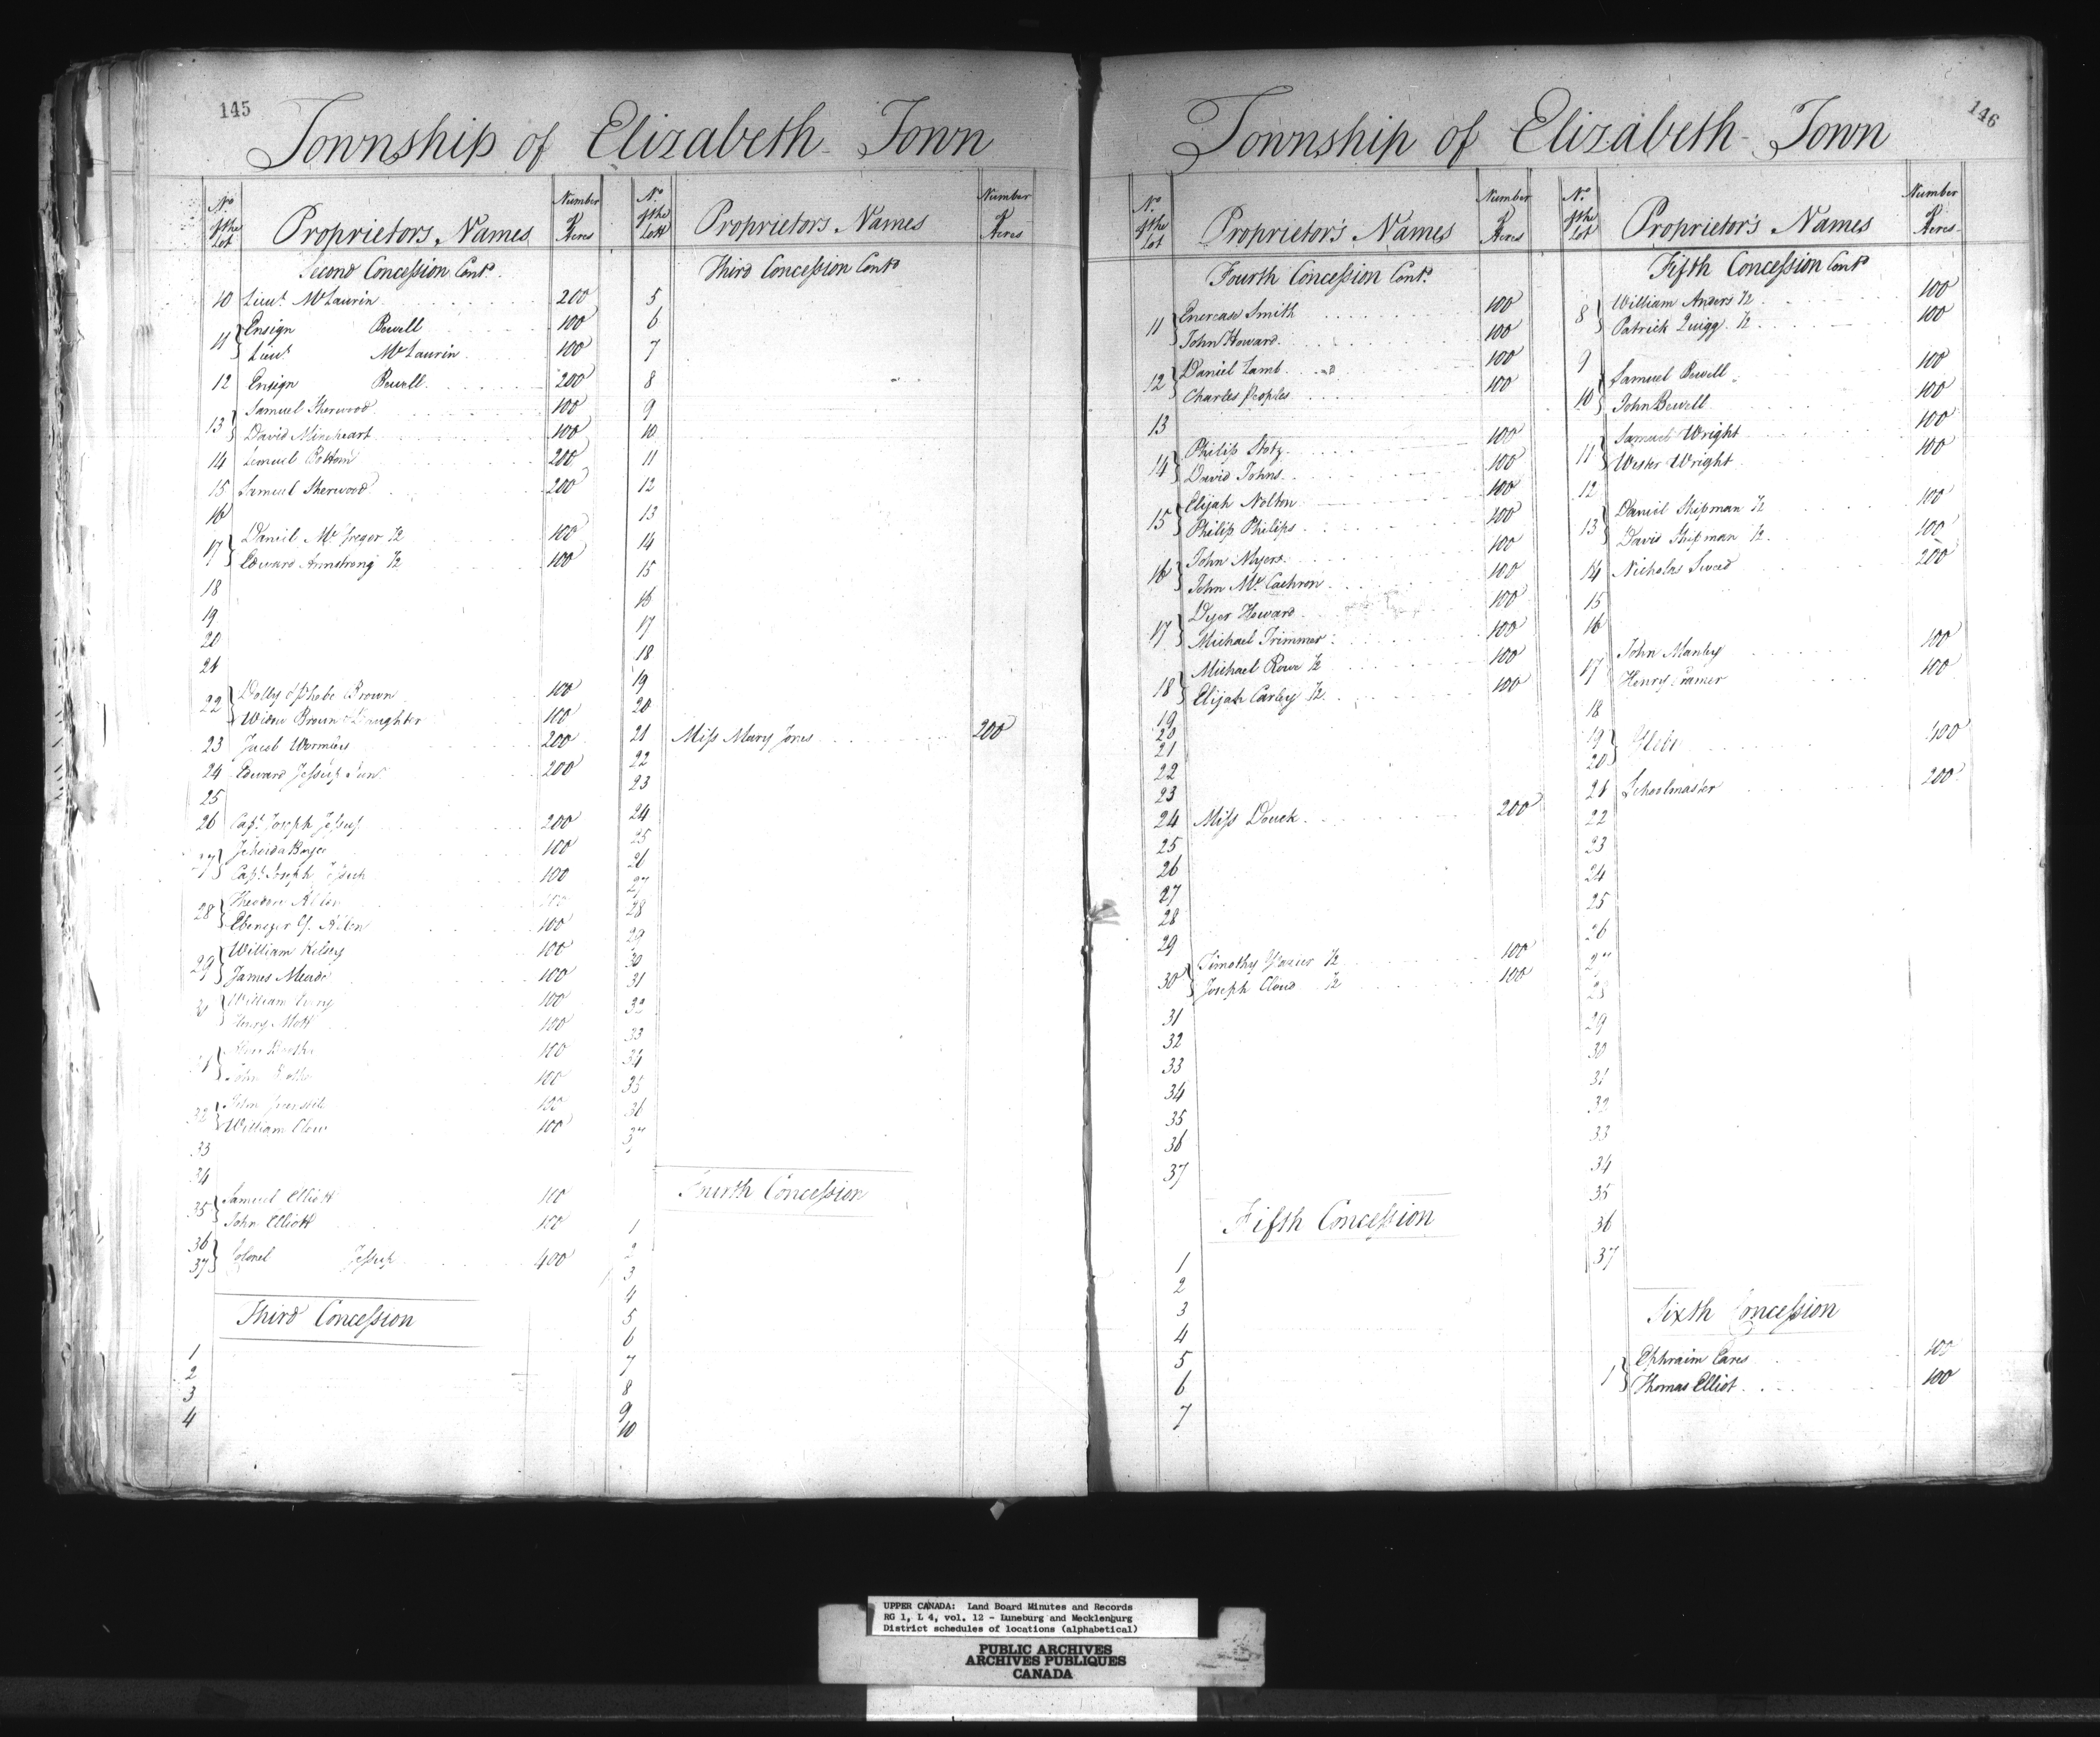 145
Township of Elizabeth-Town
No of the Lot
Proprietors Names
Number of Acres
Second Concession Contd
10 Lieut. McLaurin 200
11 Ensign Bewell 100
Lieut. McLaurin 100
12 Ensign Bewell 200
13 Samuel Sherwood 100
David Mineheart 100
14 Lemuel Bottom 200
15 Samuel Sherwood 200
16
17 Daniel McGregor ½ 100
Edward Armstrong ½ 100
18
19
20
21
22 Dolly & Phebe Brown 100
Widow Brown & Daughter 100
23 Jacob 200
24 Edward Jessup Junr. 200
25
26 Capt. Joseph Jessup 200
27 100
Capt. Joseph Jessup 100
28 100
Ebenezer 100
29 William Kelsey 100
James Meade 100
30 William 100
Henry Mott 100
31 100
John 100
32 John 100
William Clow 100
33
34
35 Samuel Elliott 100
John Elliott 100
36
37 Colonel Jessup 400
Third Concession
1
2
3
4
No of the Lott
Proprietors Names
Number of Acres
Third Concession Contd
5
6
7
8
9
10
11
12
13
14
15
16
17
18
19
20
21 Miss Mary Jones 200
22
23
24
25
26
27
28
29
30
31
32
33
34
35
36
37
Fourth Concession
1
2
3
4
5
6
7
8
9
10
146
Township of Elizabeth-Town
No of the Lot
Proprietor's Names
Number of Acres
Fourth Concession Contd.
11 Enercase Smith 100
John Howard 100
12 Daniel Lamb 100
Charles Peoples 100
13
14 Philip Stotz 100
David Johns 100
15 Elijah Nolton 100
Philip Philips 100
16 John Myers 100
John McCachron 100
17 Dyer Howard 100
Michael Trimmer 100
18 Michael Rowe ½ 100
Elijah Carley ½ 100
19
20
21
22
23
24 Miss Douck 200
25
26
27
28
29
30 Timothy ½ 100
Joseph Cloud ½ 100
31
32
33
34
35
36
37
Fifth Concession
1
2
3
4
5
6
7
No of the Lot
Proprietor's Names
Number of Acres
Fifth Concession Contd
8 William Anders ½ 100
Patrick Quigg ½ 100
9
10 Samuel Bewell 100
John Bewell 100
11 Samuel Wright 100
Wester Wright 100
12
13 Daniel Shipman ½ 100
David Shipman ½ 100
14 Nicholas 200
15
16
17 John Manley 100
Henry Cramer 100
18
19
20 Glebe 400
21 Schoolmaster 200
22
23
24
25
26
27
28
29
30
31
32
33
34
35
36
37
Sixth Concession
1 Ephraim 100
Thomas Elliot 100
UPPER CANADA: Land Board Minutes and Records
RG 1, L 4, vol. 12 - Luneburg and Mecklenburg
District schedules of locations (alphabetical)
PUBLIC ARCHIVES
ARCHIVES PUBLIQUES
CANADA